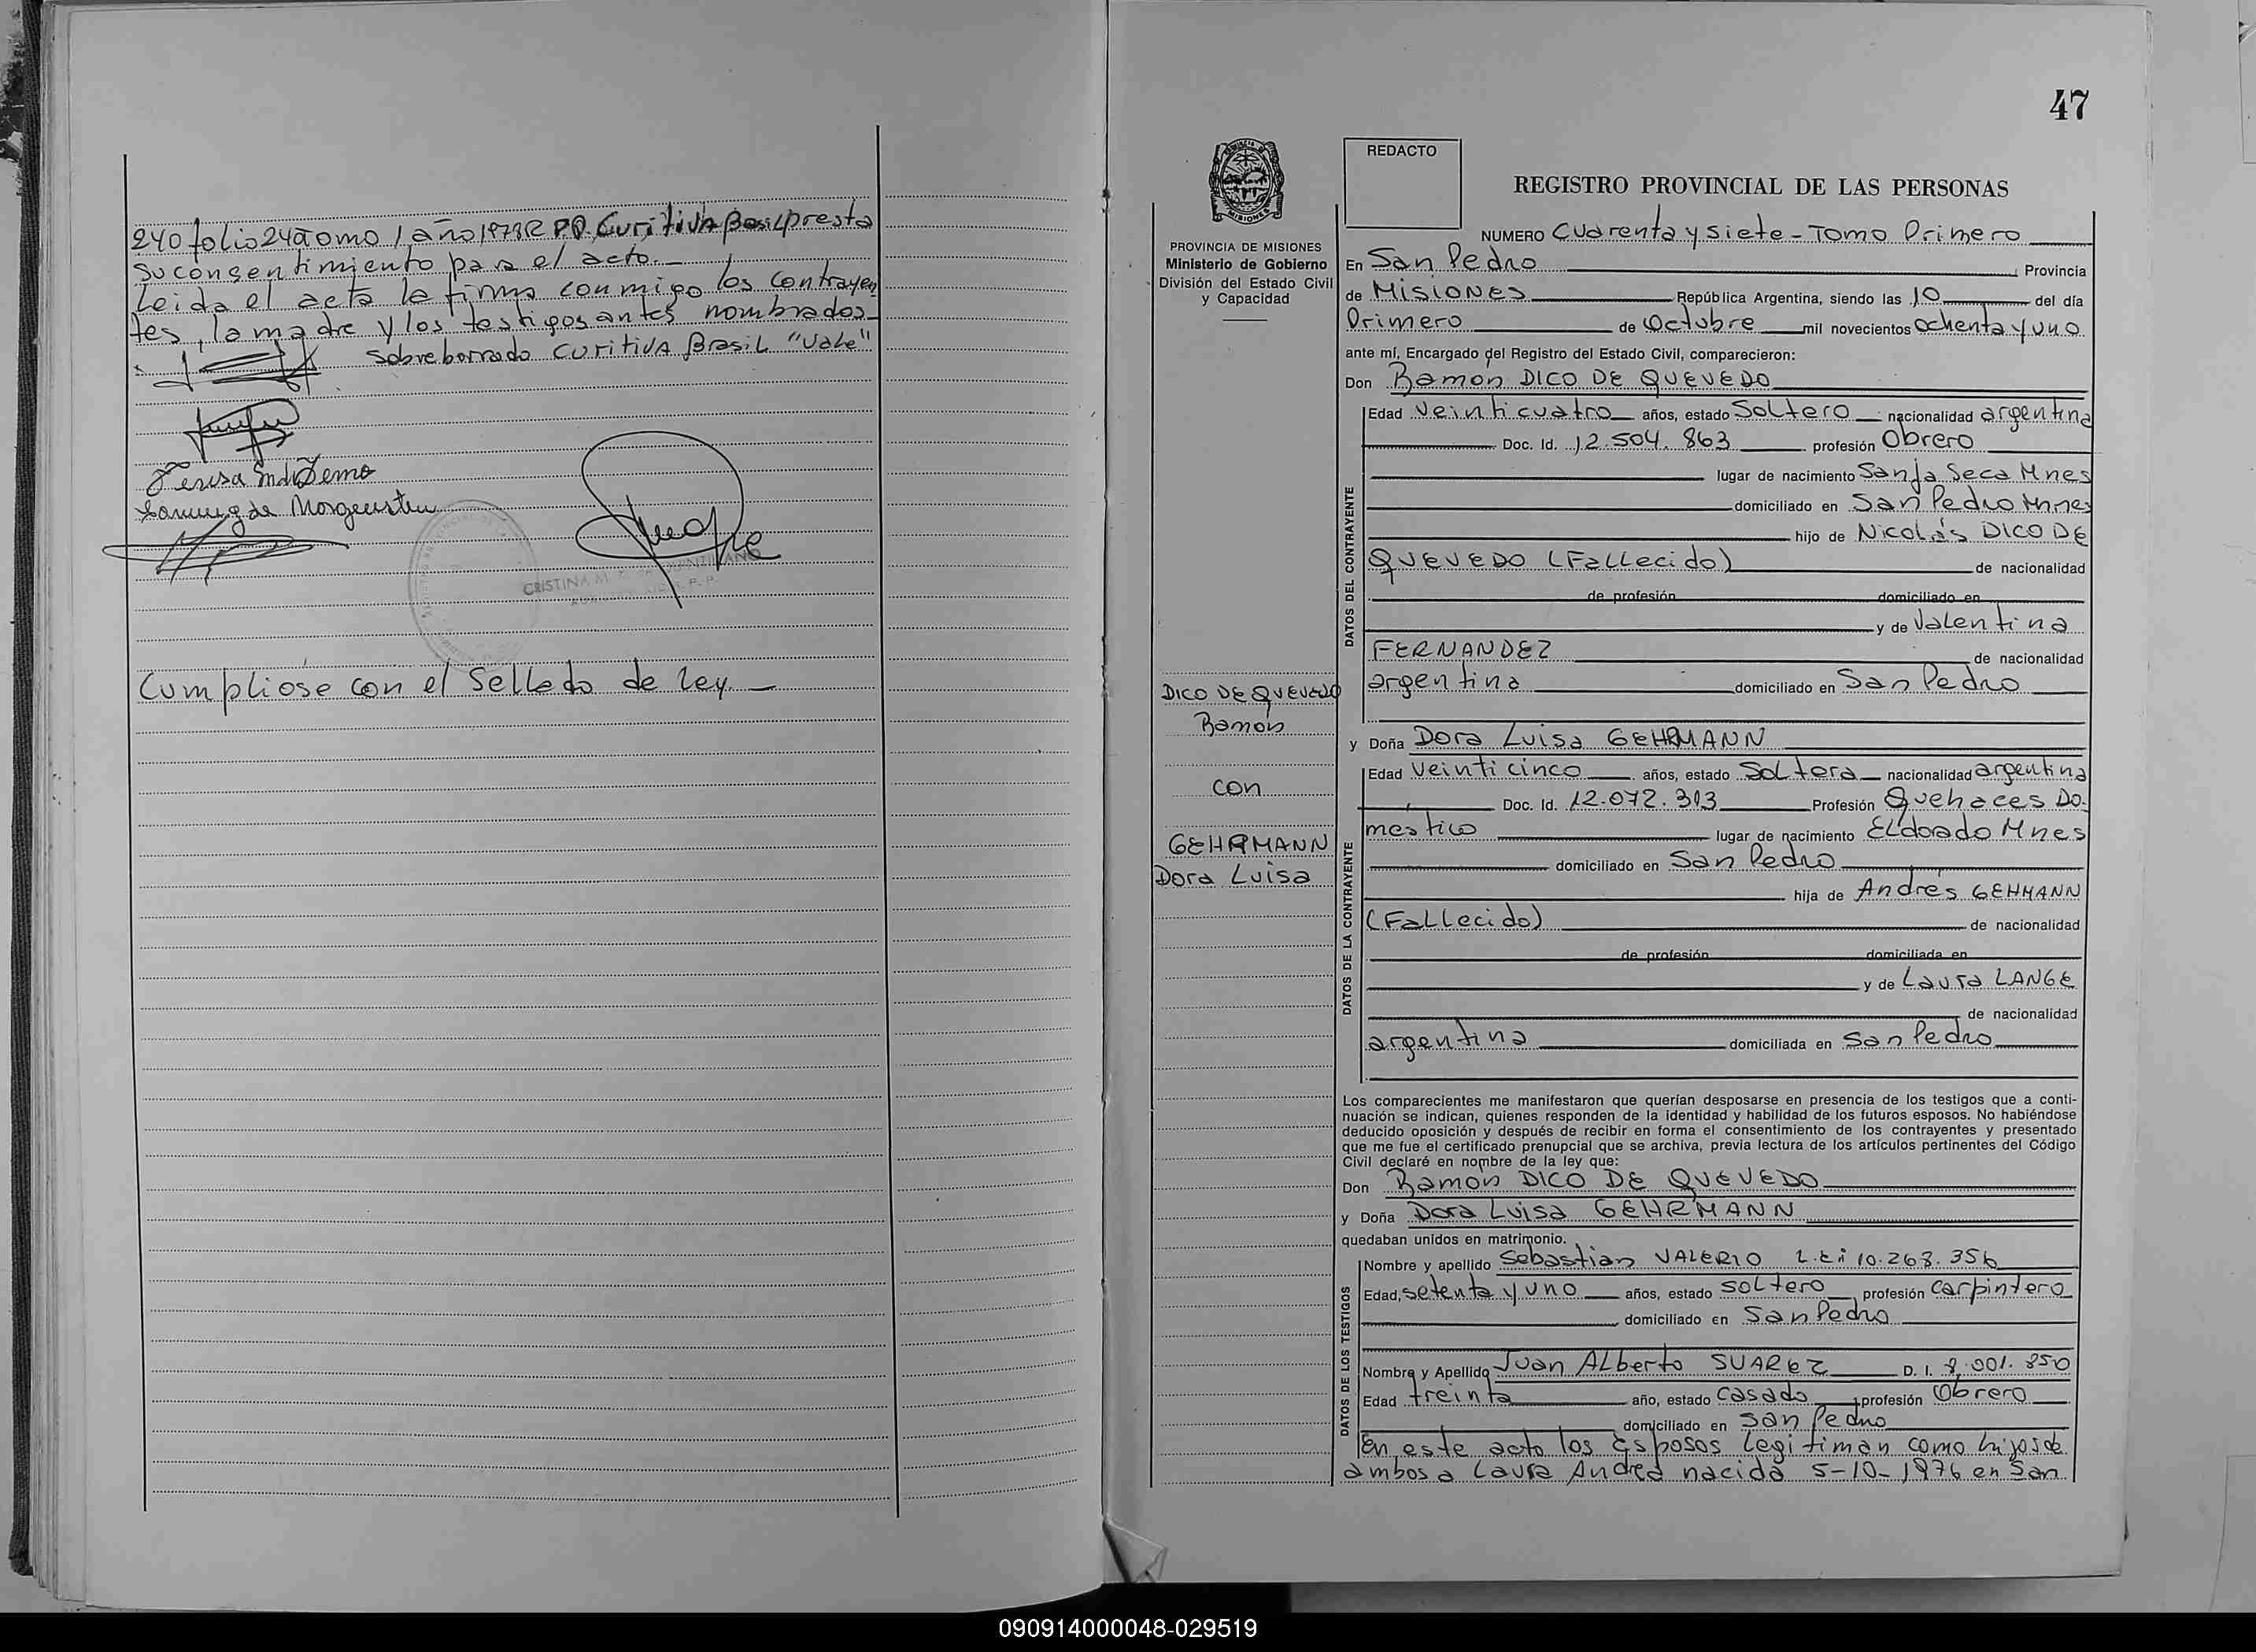 240 folio 240 tomo 1 año 1978 R PP. Curitiva Brasil presta
su consentimiento para el acto.
Leida el acta la firma conmigo los contrayen
tes, la madre y los testigos antes nombrados
Sobre borrado Curitiva Brasil "Vale"
Teresa
de Morgenstern
CRISTINA M.
Cumpliose con el Sellado de Ley.
47
REDACTO
REGISTRO PROVINCIAL DE LAS PERSONAS
PROVINCIA DE MISIONES
Ministerio de Gobierno
División del Estado Civil
y Capacidad
NUMERO Cuarenta y siete - Tomo Primero
En San Pedro Provincia
de Misiones República Argentina, siendo las 10 del día
Primero de Octubre mil novecientos ochenta y uno
ante mí, Encargado del Registro del Estado Civil, comparecieron:
Don Ramón DICO DE QUEVEDO
DATOS DEL CONTRAYENTE
Edad Veinticuatro años, estado Soltero nacionalidad argentina
Doc. Id. 12.504.863 profesión Obrero
lugar de nacimiento Sanja Seca Mnes
domiciliado en San Pedro Mnes
hijo de Nicolás DICO DE
QUEVEDO (Fallecido) de nacionalidad
de profesión domiciliado en
y de Valentina
FERNANDEZ de nacionalidad
argentina domiciliado en San Pedro
DICO DE QUEVEDO
Ramón
con
GEHRMANN
Dora Luisa
y Doña Dora Luisa GEHRMANN
DATOS DE LA CONTRAYENTE
Edad Veinticinco años, estado Soltera nacionalidad argentina
Doc. Id. 12.072.313 Profesión Quehaces Do-
méstico lugar de nacimiento Eldorado Mnes
domiciliado en San Pedro
hija de Andrés GEHMANN
(Fallecido) de nacionalidad
de profesión domiciliada en
y de Laura LANGE
de nacionalidad
argentina domiciliada en San Pedro
Los comparecientes me manifestaron que querían desposarse en presencia de los testigos que a conti-
nuación se indican, quienes responden de la identidad y habilidad de los futuros esposos. No habiéndose
deducido oposición y después de recibir en forma el consentimiento de los contrayentes y presentado
que me fue el certificado prenupcial que se archiva, previa lectura de los artículos pertinentes del Código
Civil declaré en nombre de la ley que:
Don Ramón DICO DE QUEVEDO
y Doña Dora Luisa GEHRMANN
quedaban unidos en matrimonio.
DATOS DE LOS TESTIGOS
Nombre y apellido Sebastian VALERIO L.E: 10.268.356
Edad, setenta y uno años, estado soltero profesión carpintero
domiciliado en San Pedro
Nombre y Apellido Juan Alberto SUAREZ D. I. 8.001.850
Edad treinta año, estado casado profesión Obrero
domiciliado en San Pedro
En este acto los Esposos legitiman como hijos de
ambos a Laura Andrea nacida 5-10-1976 en San
090914000048-029519